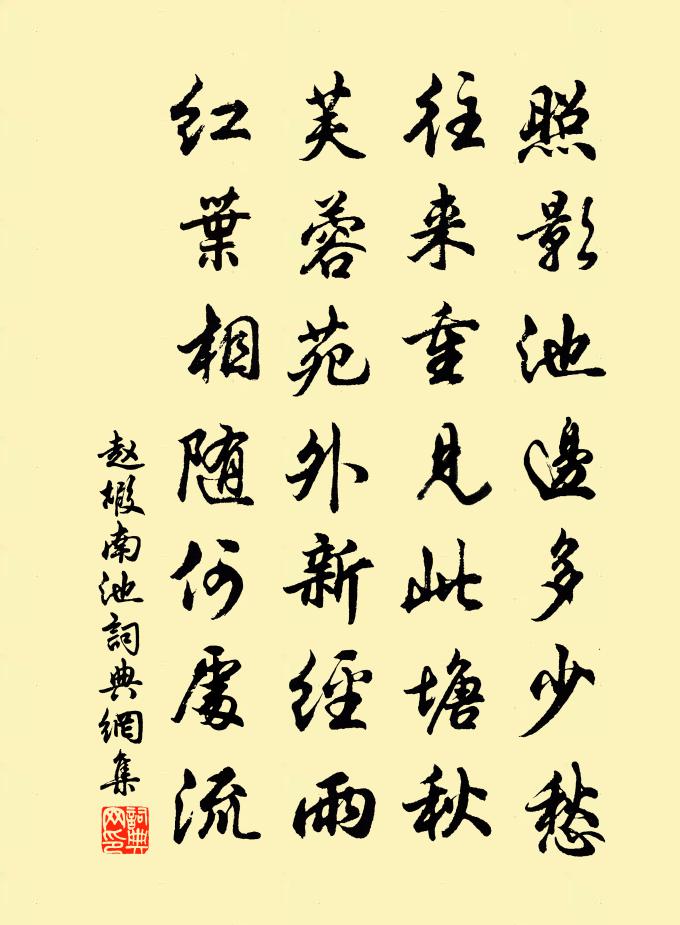 照影池邊多少愁
往来重見此塘秋
芙蓉苑外新經雨
红葉相随何處流
赵嘏南池詞典網集
詞典
网印